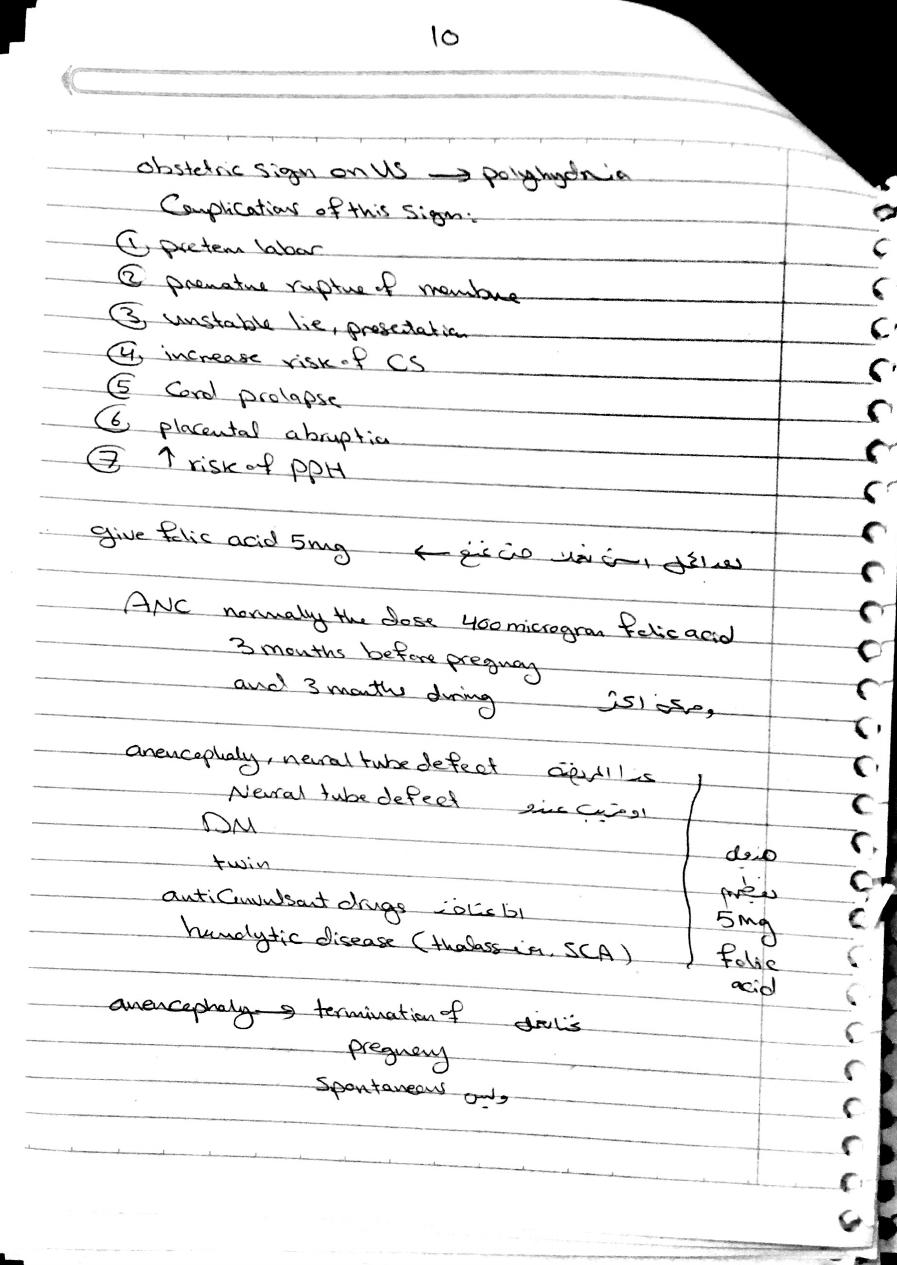 10
obstetric sign on US → polyhydnia
Complications of this sign:
① preterm labor
② premature rupture of membrane
③ unstable lie, presentation
④ increase risk of CS
⑤ Cord prolapse
⑥ placental abruptio
⑦ ↑ risk of PPH
give folic acid 5mg ←
ANC normally the dose 400 microgram folic acid
3 months before pregnancy
and 3 months during وممكن اكثر
anencephaly, neural tube defect
Neural tube defect او قريب عندو
DM
twin
anticonvulsant drugs اذا
hemolytic disease (thalassemia, SCA)
هذول
نعطيهم
5mg
folic
acid
anencephaly → termination of
pregnancy
Spontaneous وليس